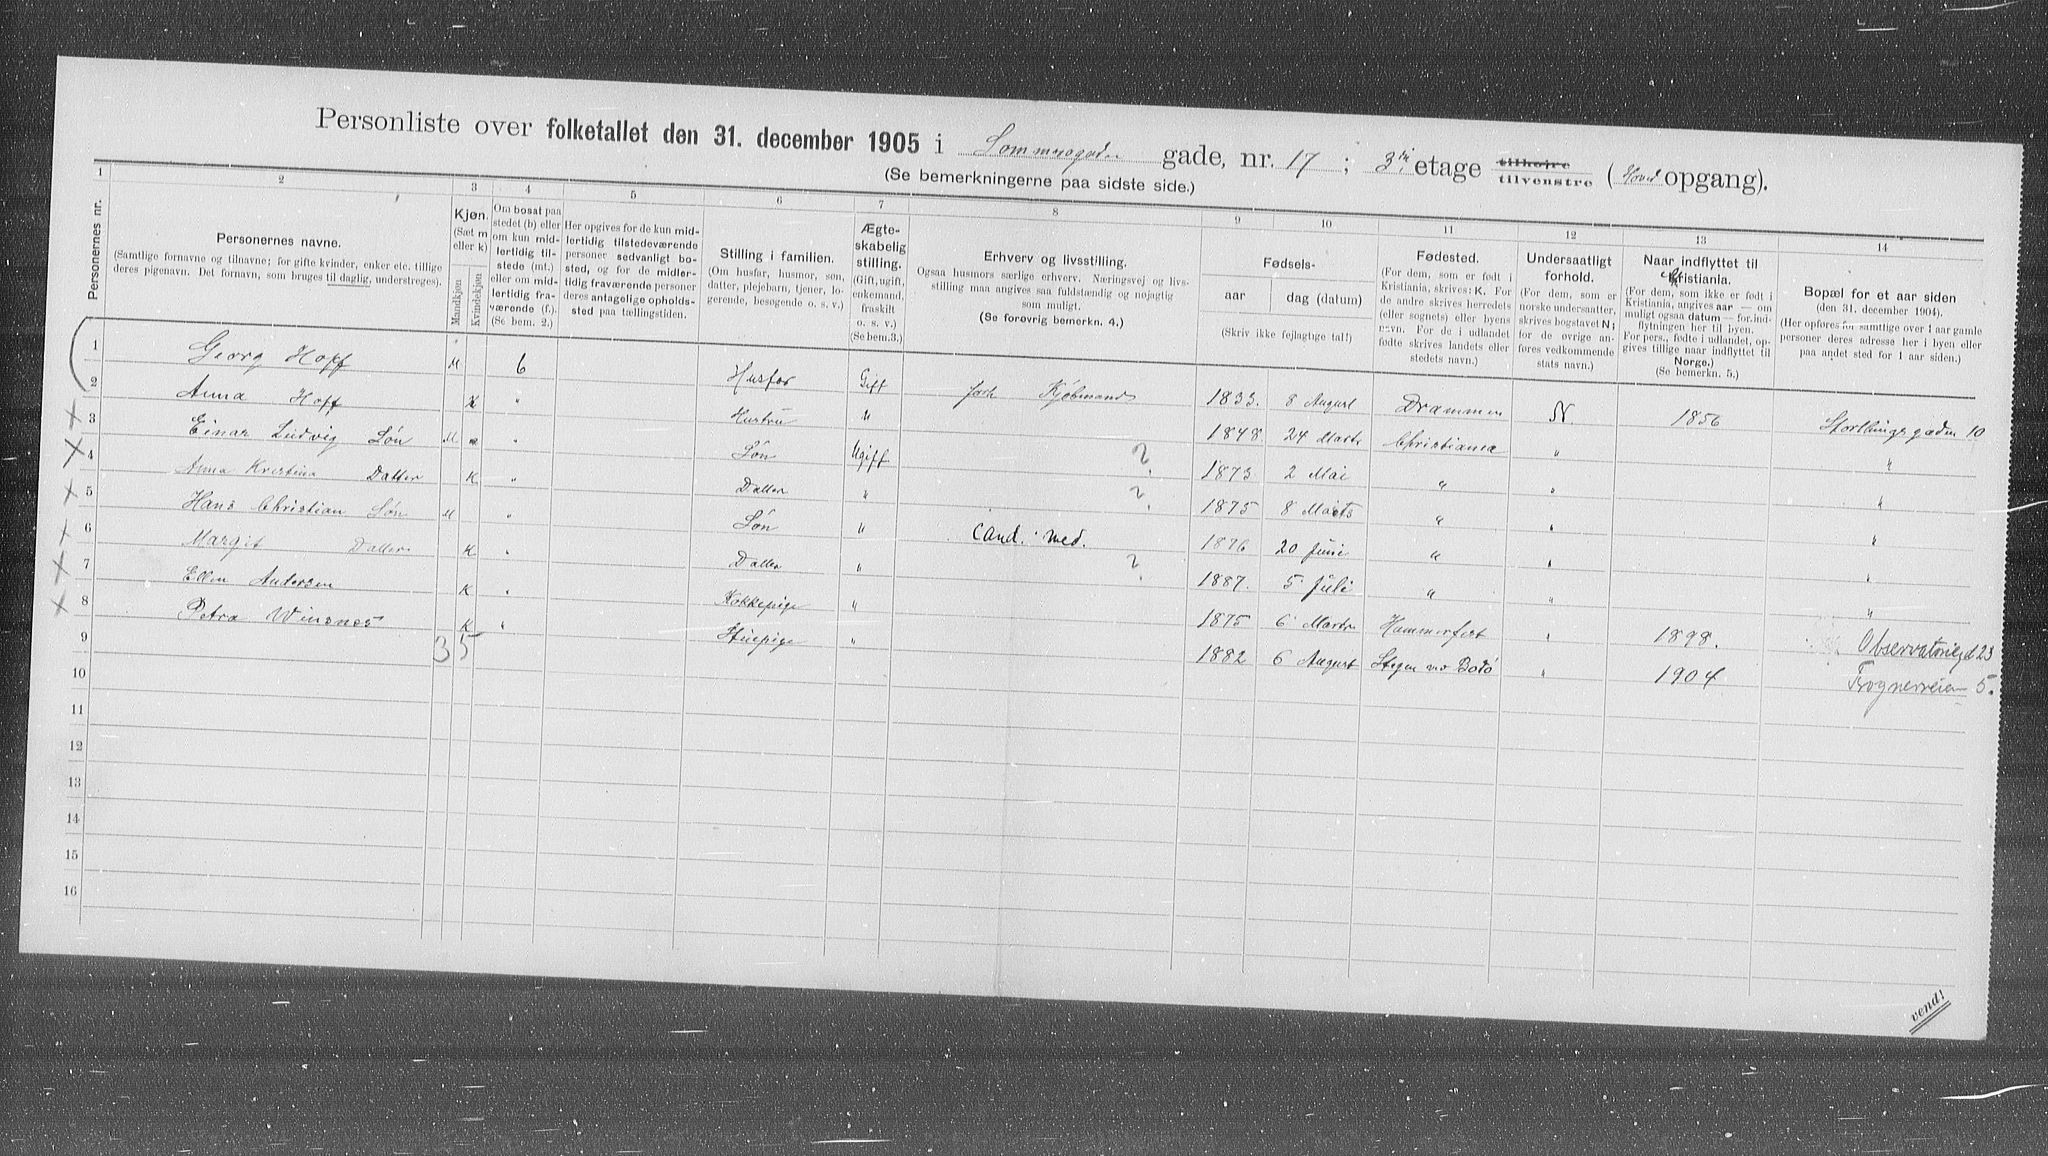 Personliste over folketallet den 31. december 1905 i Sommrogaden gade, nr. 17 ; 3di etage tilhøire tilvenstre (Hoved opgang).
(Se bemerkningerne paa sidste side.)
1 2 3 4 5 6 7 8 9 10 11 12 13 14
Personernes nr.
Personernes navne.
(Samtlige fornavne og tilnavne; for gifte kvinder, enker etc. tillige
deres pigenavn. Det fornavn, som bruges til daglig, understreges).
Kjøn.
(Sæt m
eller k)
Mandkjøn
Kvindekjøn
Om bosat paa
stedet (b) eller
om kun mid-
lertidig til-
stede (mt.)
eller om mid-
lertidig fra-
værende (f.)
(Se bem. 2.)
Her opgives for de kun mid-
lertidig tilstedeværende
personer sedvanligt bo-
sted, og for de midler-
tidig fraværende personer
deres antagelige opholds-
sted paa tællingstiden.
Stilling i familien.
(Om husfar, husmor, søn,
datter, plejebarn, tjener, lo-
gerende, besøgende o. s. v.)
Ægte-
skabelig
stilling.
(Gift, ugift,
enkemand,
fraskilt
o. s. v.)
(Se bem.3.)
Erhverv og livsstilling.
Ogsaa husmors særlige erhverv. Næringsvej og livs-
stilling maa angives saa fuldstændig og nøjagtig
som muligt.
(Se forøvrig bemerkn. 4.)
Fødsels-
aar dag (datum)
(Skriv ikke fejlagtige tal!)
Fødested.
(For dem, som er født i
Kristiania, skrives: K. For
de andre skrives herredets
(eller sognets) eller byens
navn. For de i udlandet
fødte skrives landets eller
stedets navn.)
Undersaatligt
forhold.
(For dem, som er
norske undersaatter,
skrives bogstavet N;
for de øvrige an-
føres vedkommende
stats navn.)
Naar indflyttet til
Kristiania.
(For dem, som ikke er født i
Kristiania, angives aar — om
muligt ogsaa datum — for ind-
flytningen her til byen.
For pers., fødte i udlandet, op-
gives tillige naar indflyttet til
Norge.)
(Se bemerkn. 5.)
Bopæl for et aar siden
(den 31. december 1904).
(Her opføres for samtlige over 1 aar gamle
personer deres adresse her i byen eller
paa andet sted for 1 aar siden.)
1 Georg Hopf M b Husfar Gift forh Kjøbmand 1833. 8 August Drammen N. 1856 Storthingsgaden 10
2 Anna Hopf K " Hustru " 1848. 24 Marts Christiania " "
3 Einar Ludvig Søn M " Søn Ugift ? 1873 2 Mai " " "
4 Anna Kristina Datter K " Datter " ? 1875 8 Marts " " "
5 Hans Christian Søn M " Søn " cand. med. 1876 20 Juni " " "
6 Margit Datter K " Datter " ? 1887. 5 Juli " " "
7 Ellen Andersen K " Kokkepige " 1875 6 Marts Hammerfest " 1898. Observatoriegd 23
8 Petra Winsnes K " Stuepige " 1882 6 August Stegen v/ Bodø " 1904 Frognerveien 5.
9 3 5
10
11
12
13
14
15
16
vend!